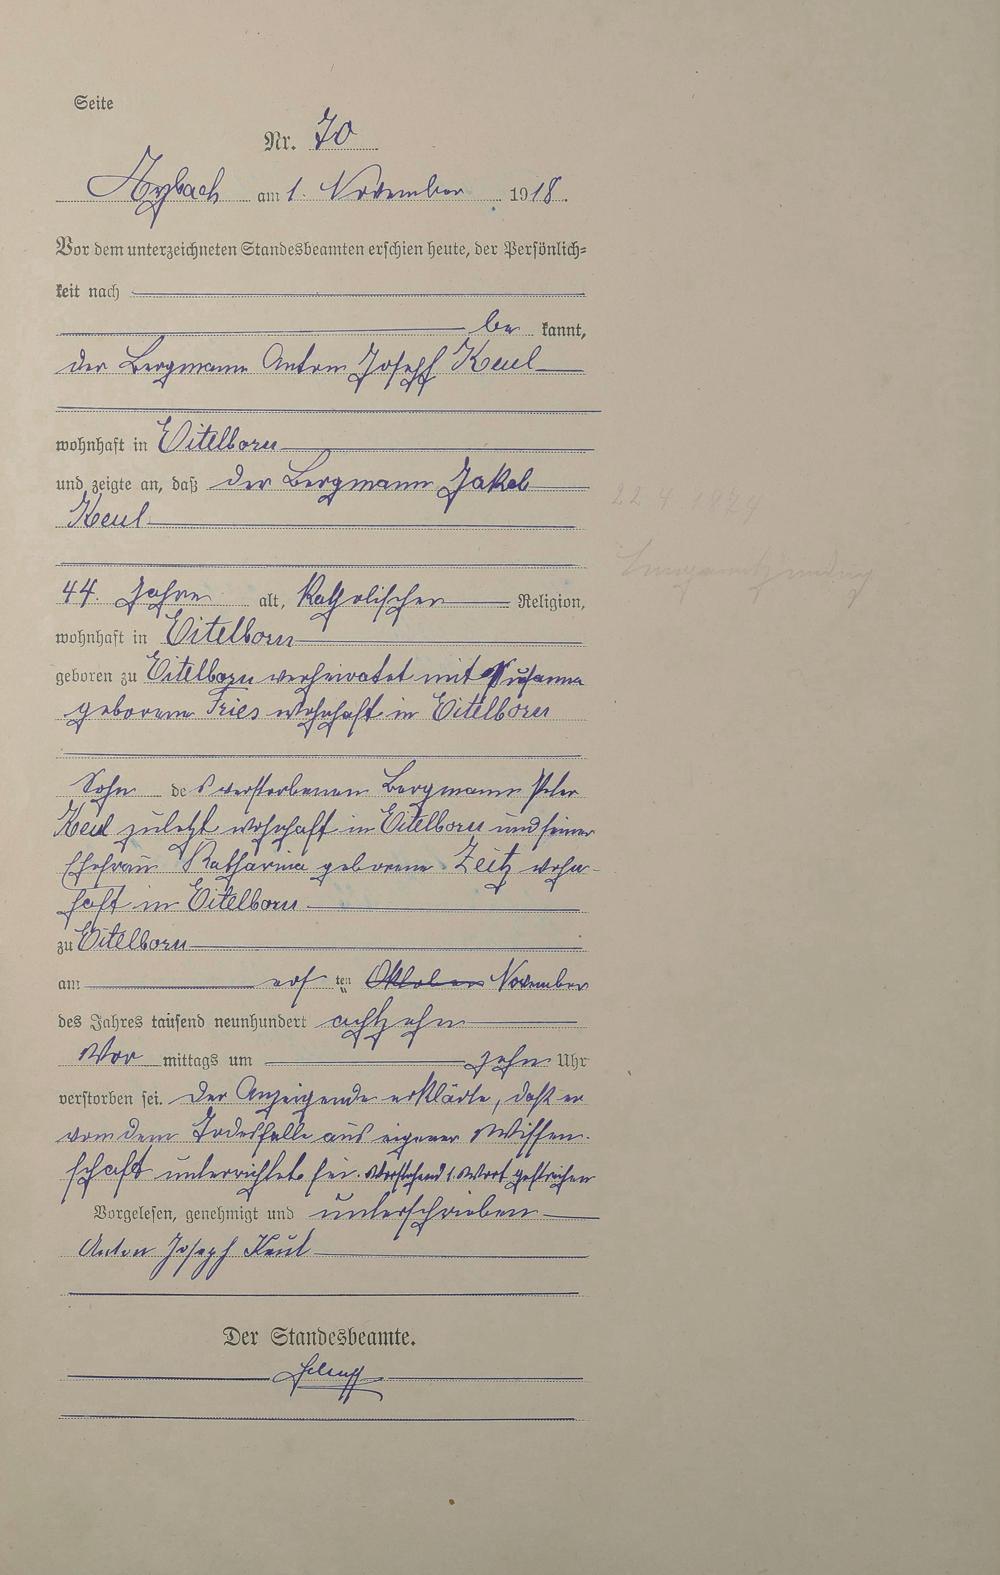 Seite
Nr. 70
Arzbach am 1. November 1918.
Vor dem unterzeichneten Standesbeamten erschien heute, der Persönlich=
keit nach
be kannt,
der Bergmann Anton Joseph Keul
wohnhaft in Eitelborn
und zeigte an, daß der Bergmann Jakob
Keul
44 Jahre alt, katholischer Religion,
wohnhaft in Eitelborn
geboren zu Eitelborn verheiratet mit Susanna
geborene Fries wohnhaft in Eitelborn
Sohn des verstorbenen Bergmann Peter
Keul zuletzt wohnhaft in Eitelborn und seiner
Ehefrau Katharina geborene Zeitz wohn-
haft in Eitelborn
zu Eitelborn
am ersten Oktober November
des Jahres tausend neunhundert achtzehn
Vor mittags um zehn Uhr
verstorben sei. Der Anzeigende erklärte, daß er
von dem Todesfalle aus eigener Wissen-
schaft unterrichtet sei. Vorstehend 1. Wort gestrichen
Vorgelesen, genehmigt und unterschrieben
Anton Joseph Keul
Der Standesbeamte.
22 4 1879